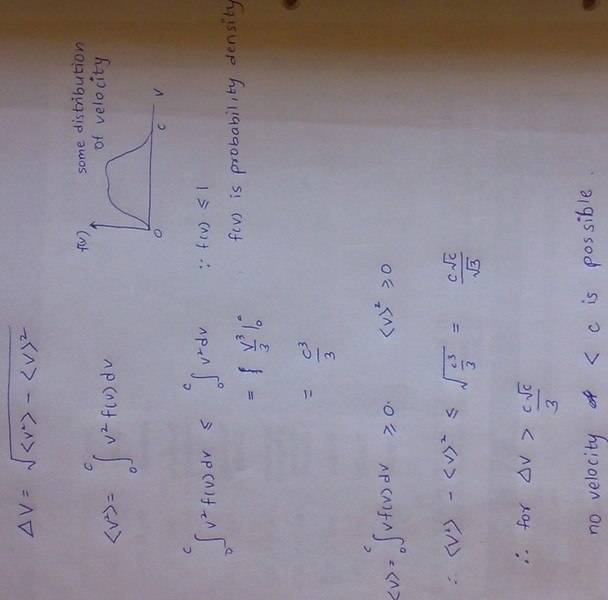 ΔV = √(<v²> - <v>²)
some distribution
of velocity
f(v)
0 c v
<v²> = ₀∫ᶜ v² f(v) dv
₀∫ᶜ v² f(v) dv ≤ ₀∫ᶜ v² dv ∵ f(v) ≤ 1
f(v) is probability density
= v³/3 |₀ᶜ
= c³/3
<v> = ₀∫ᶜ v f(v) dv ≥ 0. <v>² ≥ 0
∴ <v²> - <v>² ≤ √(c³/3) = c√c/√3
∴ for ΔV > c√c/3
no velocity < c is possible.